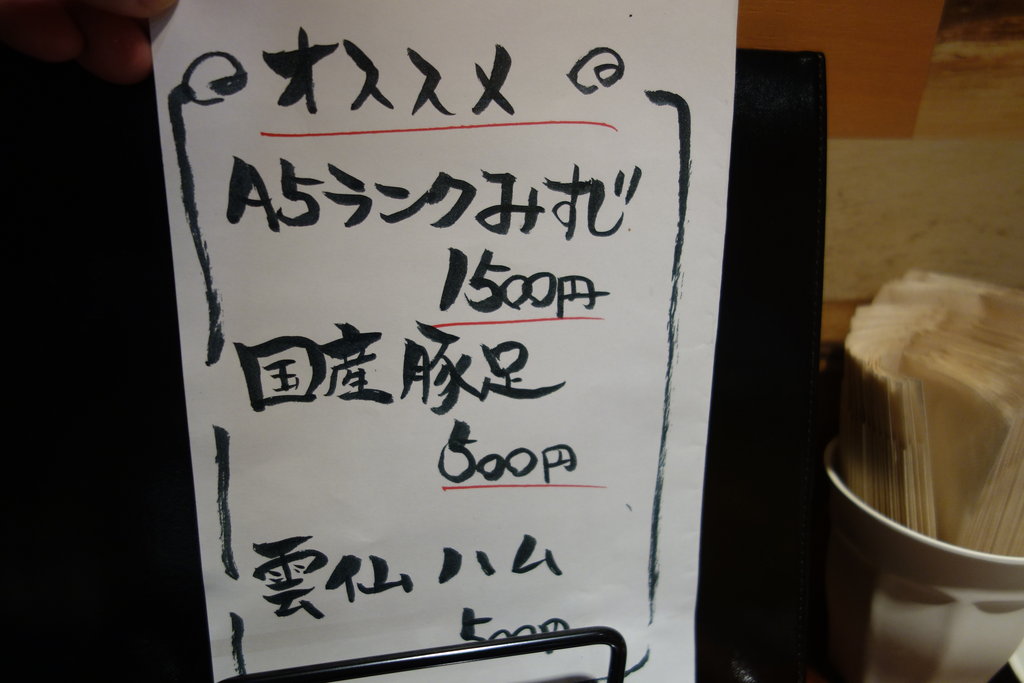 オススメ
A5ランクみすじ
1500円
国産豚足
500円
雲仙 ハム
500円